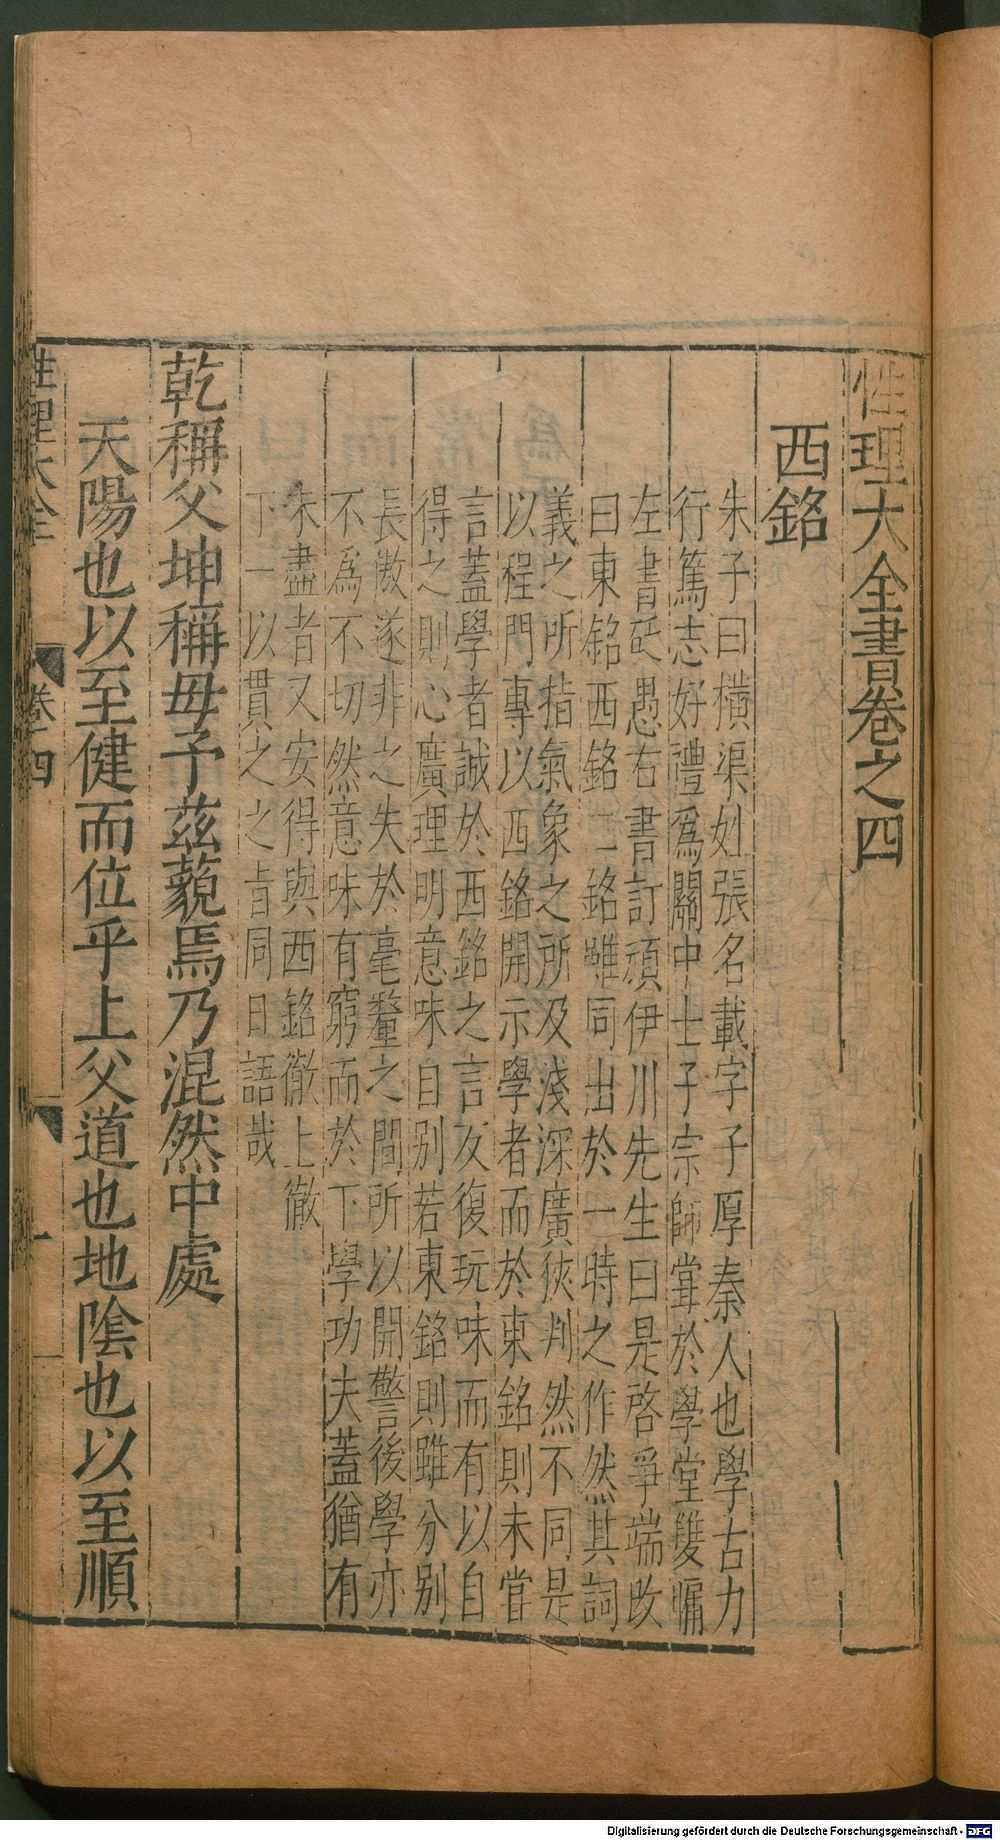 性理大全書卷之四
西銘
朱子曰橫渠姓張名載字子厚秦人也學古力
行篤志好禮爲關中士子宗師甞於學堂雙牖
左書砭愚右書訂頑伊川先生曰是啓爭端改
曰東銘西銘二銘雖同出於一時之作然其詞
義之所指氣象之所及淺深廣狹判然不同是
以程門專以西銘開示學者而於東銘則未甞
言蓋學者誠於西銘之言反復玩味而有以自
得之則心廣理明意味自别若東銘則雖分别
長傲遂非之失於毫釐之間所以開警後學亦
不爲不切然意味有窮而於下學功夫蓋猶有
未盡者又安得與西銘徹上徹
下一以貫之之旨同日語哉
乾稱父坤稱母予茲藐焉乃混然中處
天陽也以至健而位乎上父道也地陰也以至順
性理大全 卷四 一
Digitalisierung gefördert durch die Deutsche Forschungsgemeinschaft - DFG